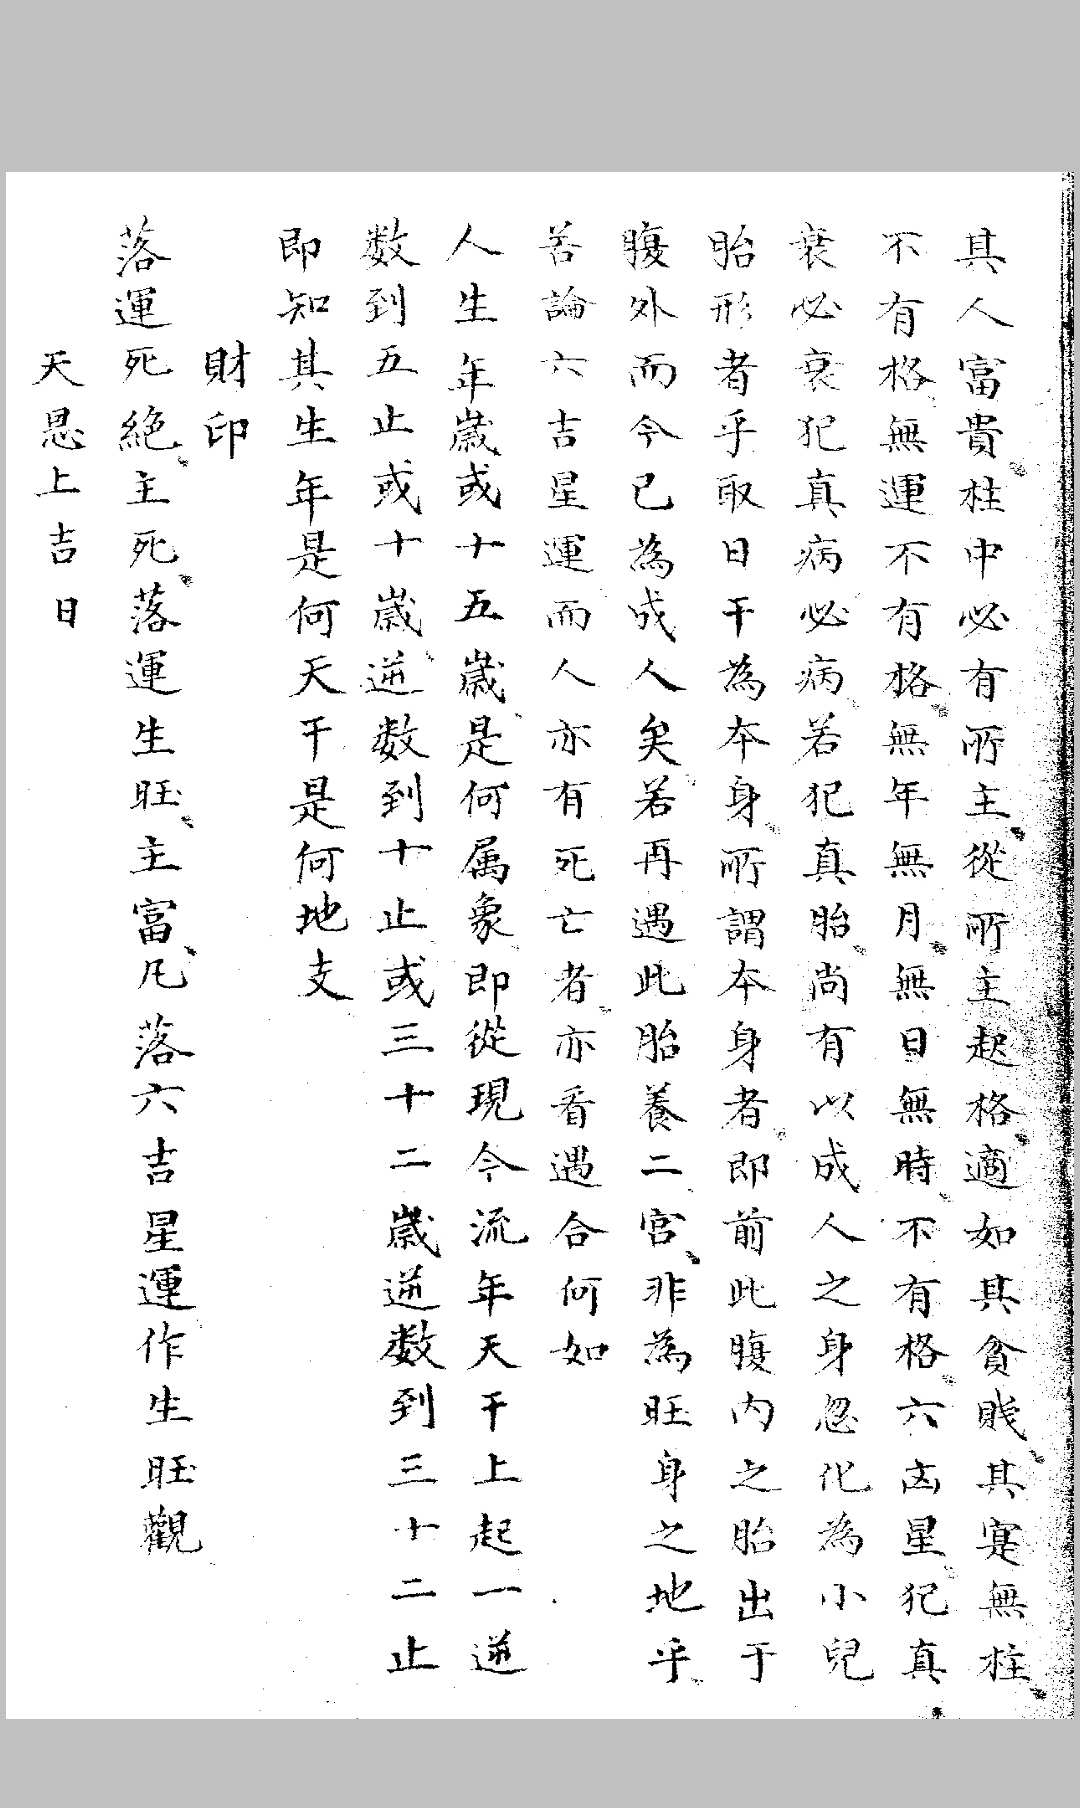 其人富貴柱中必有所主從所主起格適如其貧賎其寔無柱
不有格無運不有格無年無月無日無時不有格六凶星犯真
衰必衰犯真病必病若犯真胎尚有以成人之身忽化為小兒
胎形者乎取日干為本身所謂本身者即前此腹内之胎出于
腹外而今已為成人矣若再遇此胎養二宮非為旺身之地乎
若論六吉星運而人亦有死亡者亦看遇合何如
人生年歲或十五歲是何属象即從現今流年天干上起一逆
数到五止或十歲逆数到十止或三十二歲逆数到三十二止
即知其生年是何天干是何地支
財印
落運死絶主死落運生旺主富凡落六吉星運作生旺觀
天恩上吉日